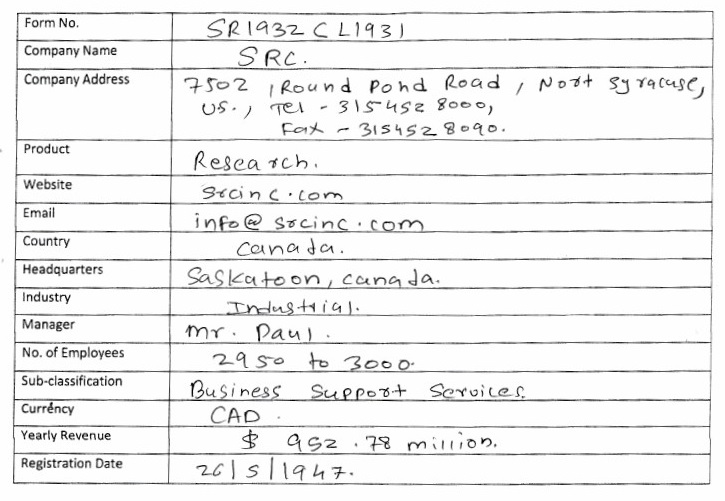 Form No. SR1932CL1931
Company Name SRC.
Company Address 7502, Round Pond Road, Nort Syracuse,
US., Tel - 315 452 8000,
Fax - 315452 8090.
Product Research.
Website srcinc.com
Email info@srcinc.com
Country Canada.
Headquarters Saskatoon, Canada.
Industry Industrial.
Manager Mr. Paul.
No. of Employees 2950 to 3000.
Sub-classification Business Support Services.
Currency CAD.
Yearly Revenue $ 952.78 million.
Registration Date 26/5/1947.